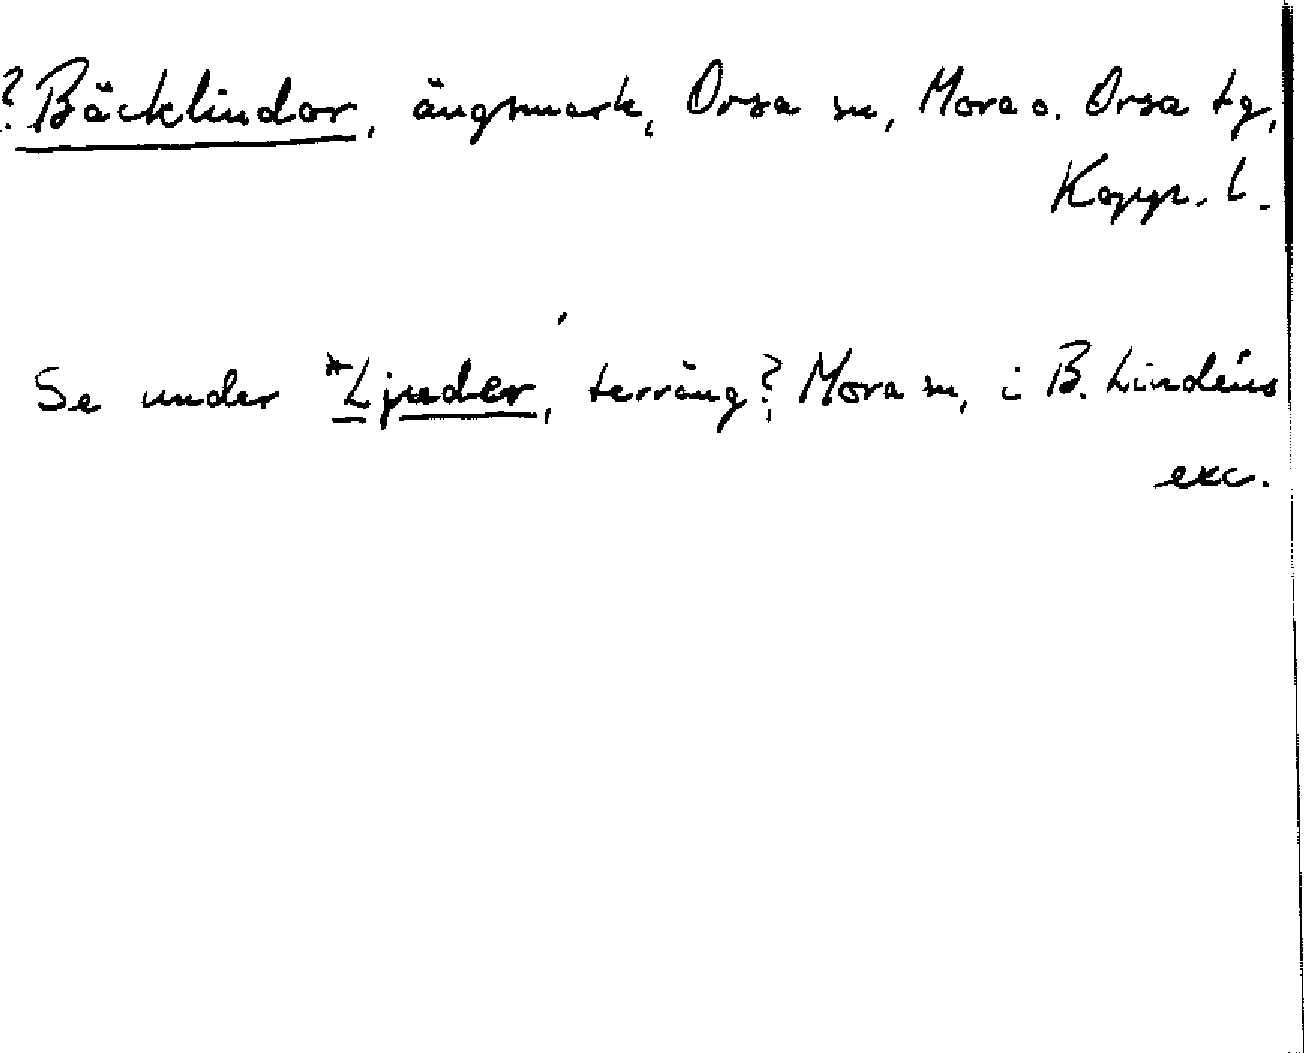 ?Bäcklindor, ängsmark, Orsa sn, Mora o. Orsa tg,
Kopp. l.
Se under *Ljuder, terräng? Mora sn, i B. Lindéns
exc.